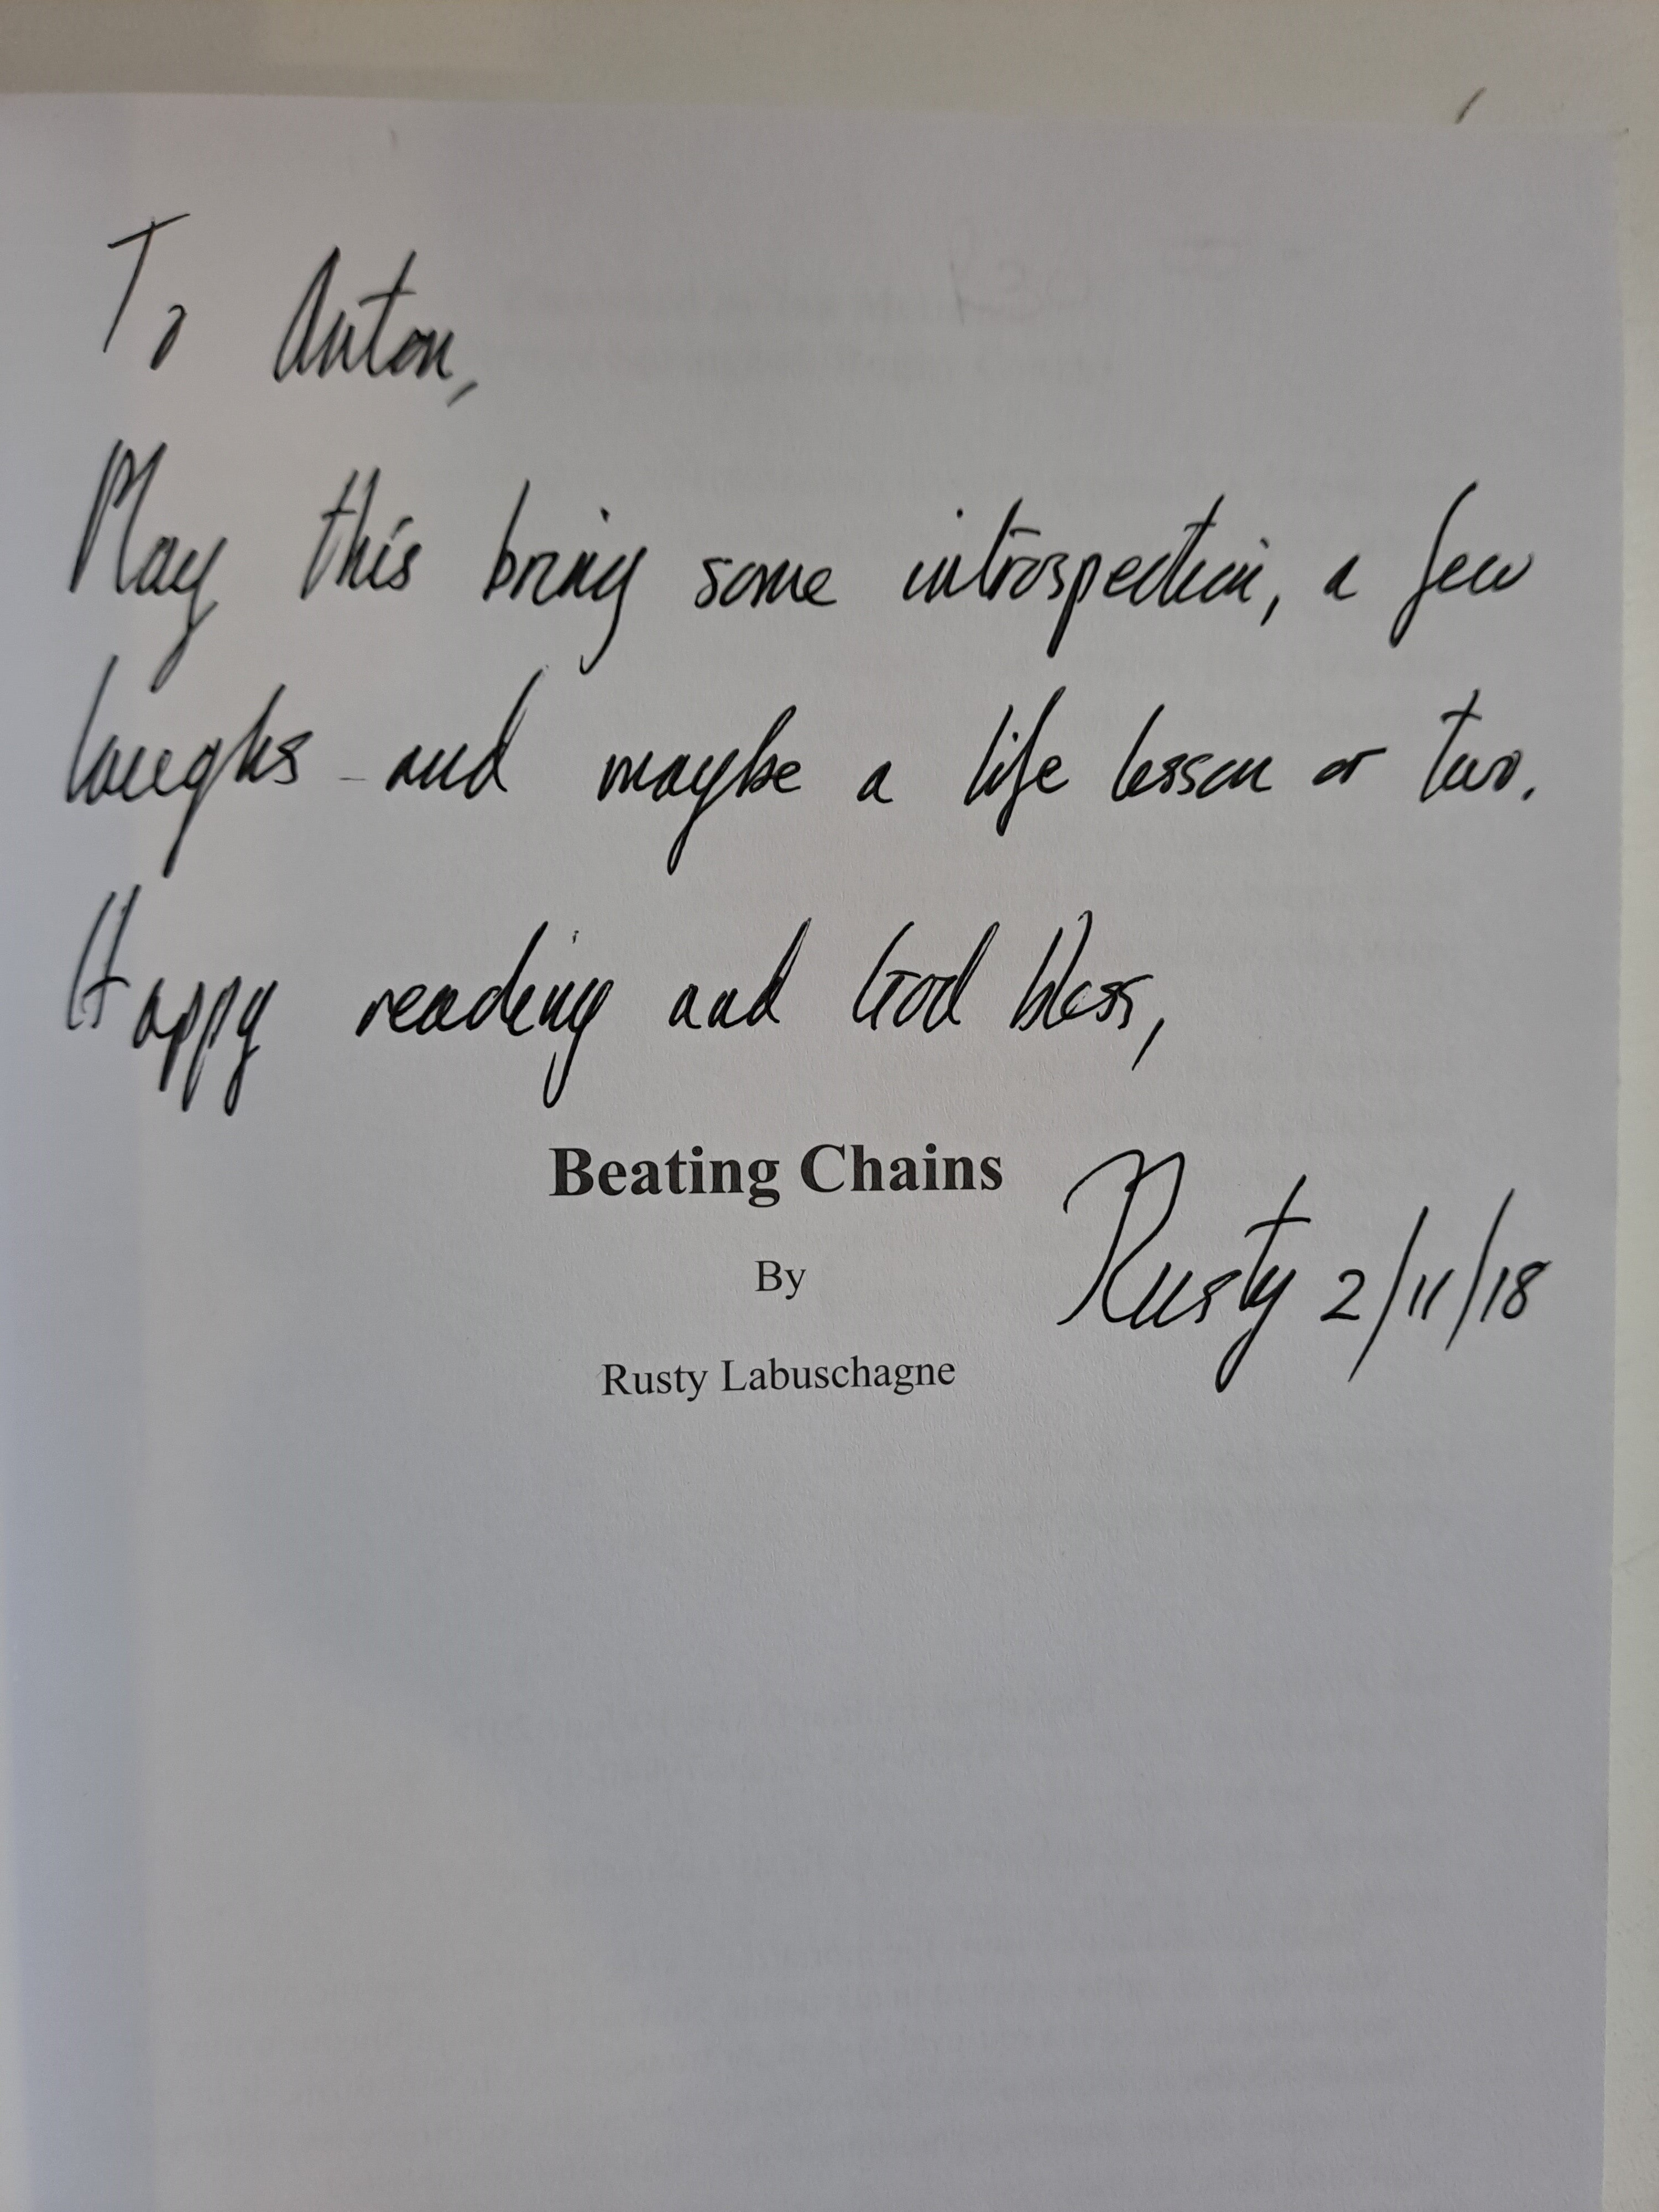 To Anton,
May this bring some introspection, a few
laughs - and maybe a life lesson or two.
Happy reading and God bless,
Beating Chains
By
Rusty 2/11/18
Rusty Labuschagne